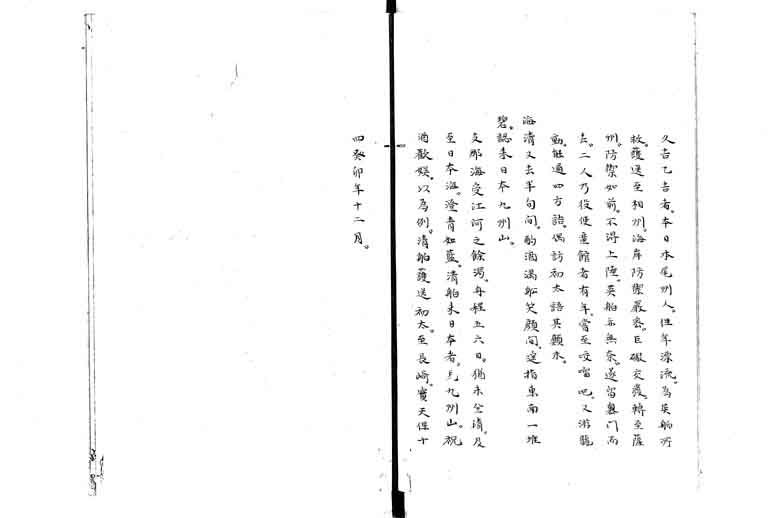 久吉乙吉者。本日本尾州人。往年漂流。為英船所
救。護送至相州。海岸防禦嚴密。巨礮交發。轉至薩
州。防禦如前。不得上陸。英船亦無奈。遂留墺門而
去。二人乃役使童館者有年。嘗至咬𠺕吧。又游龍
動。能通四方語。偶訪初太語其顛末。
海清又去半旬間。酌酒滿船笑顏開。遙指東南一堆
碧。認來日本九州山。
支那海受江河之餘濁。舟程五六日。猶未全清。及
至日本海。澄青如藍。清舶来日本者。見九州山。祝
酒歡娛。以為例。清船護送初太。至長崎。實天保十
四癸卯年十二月。